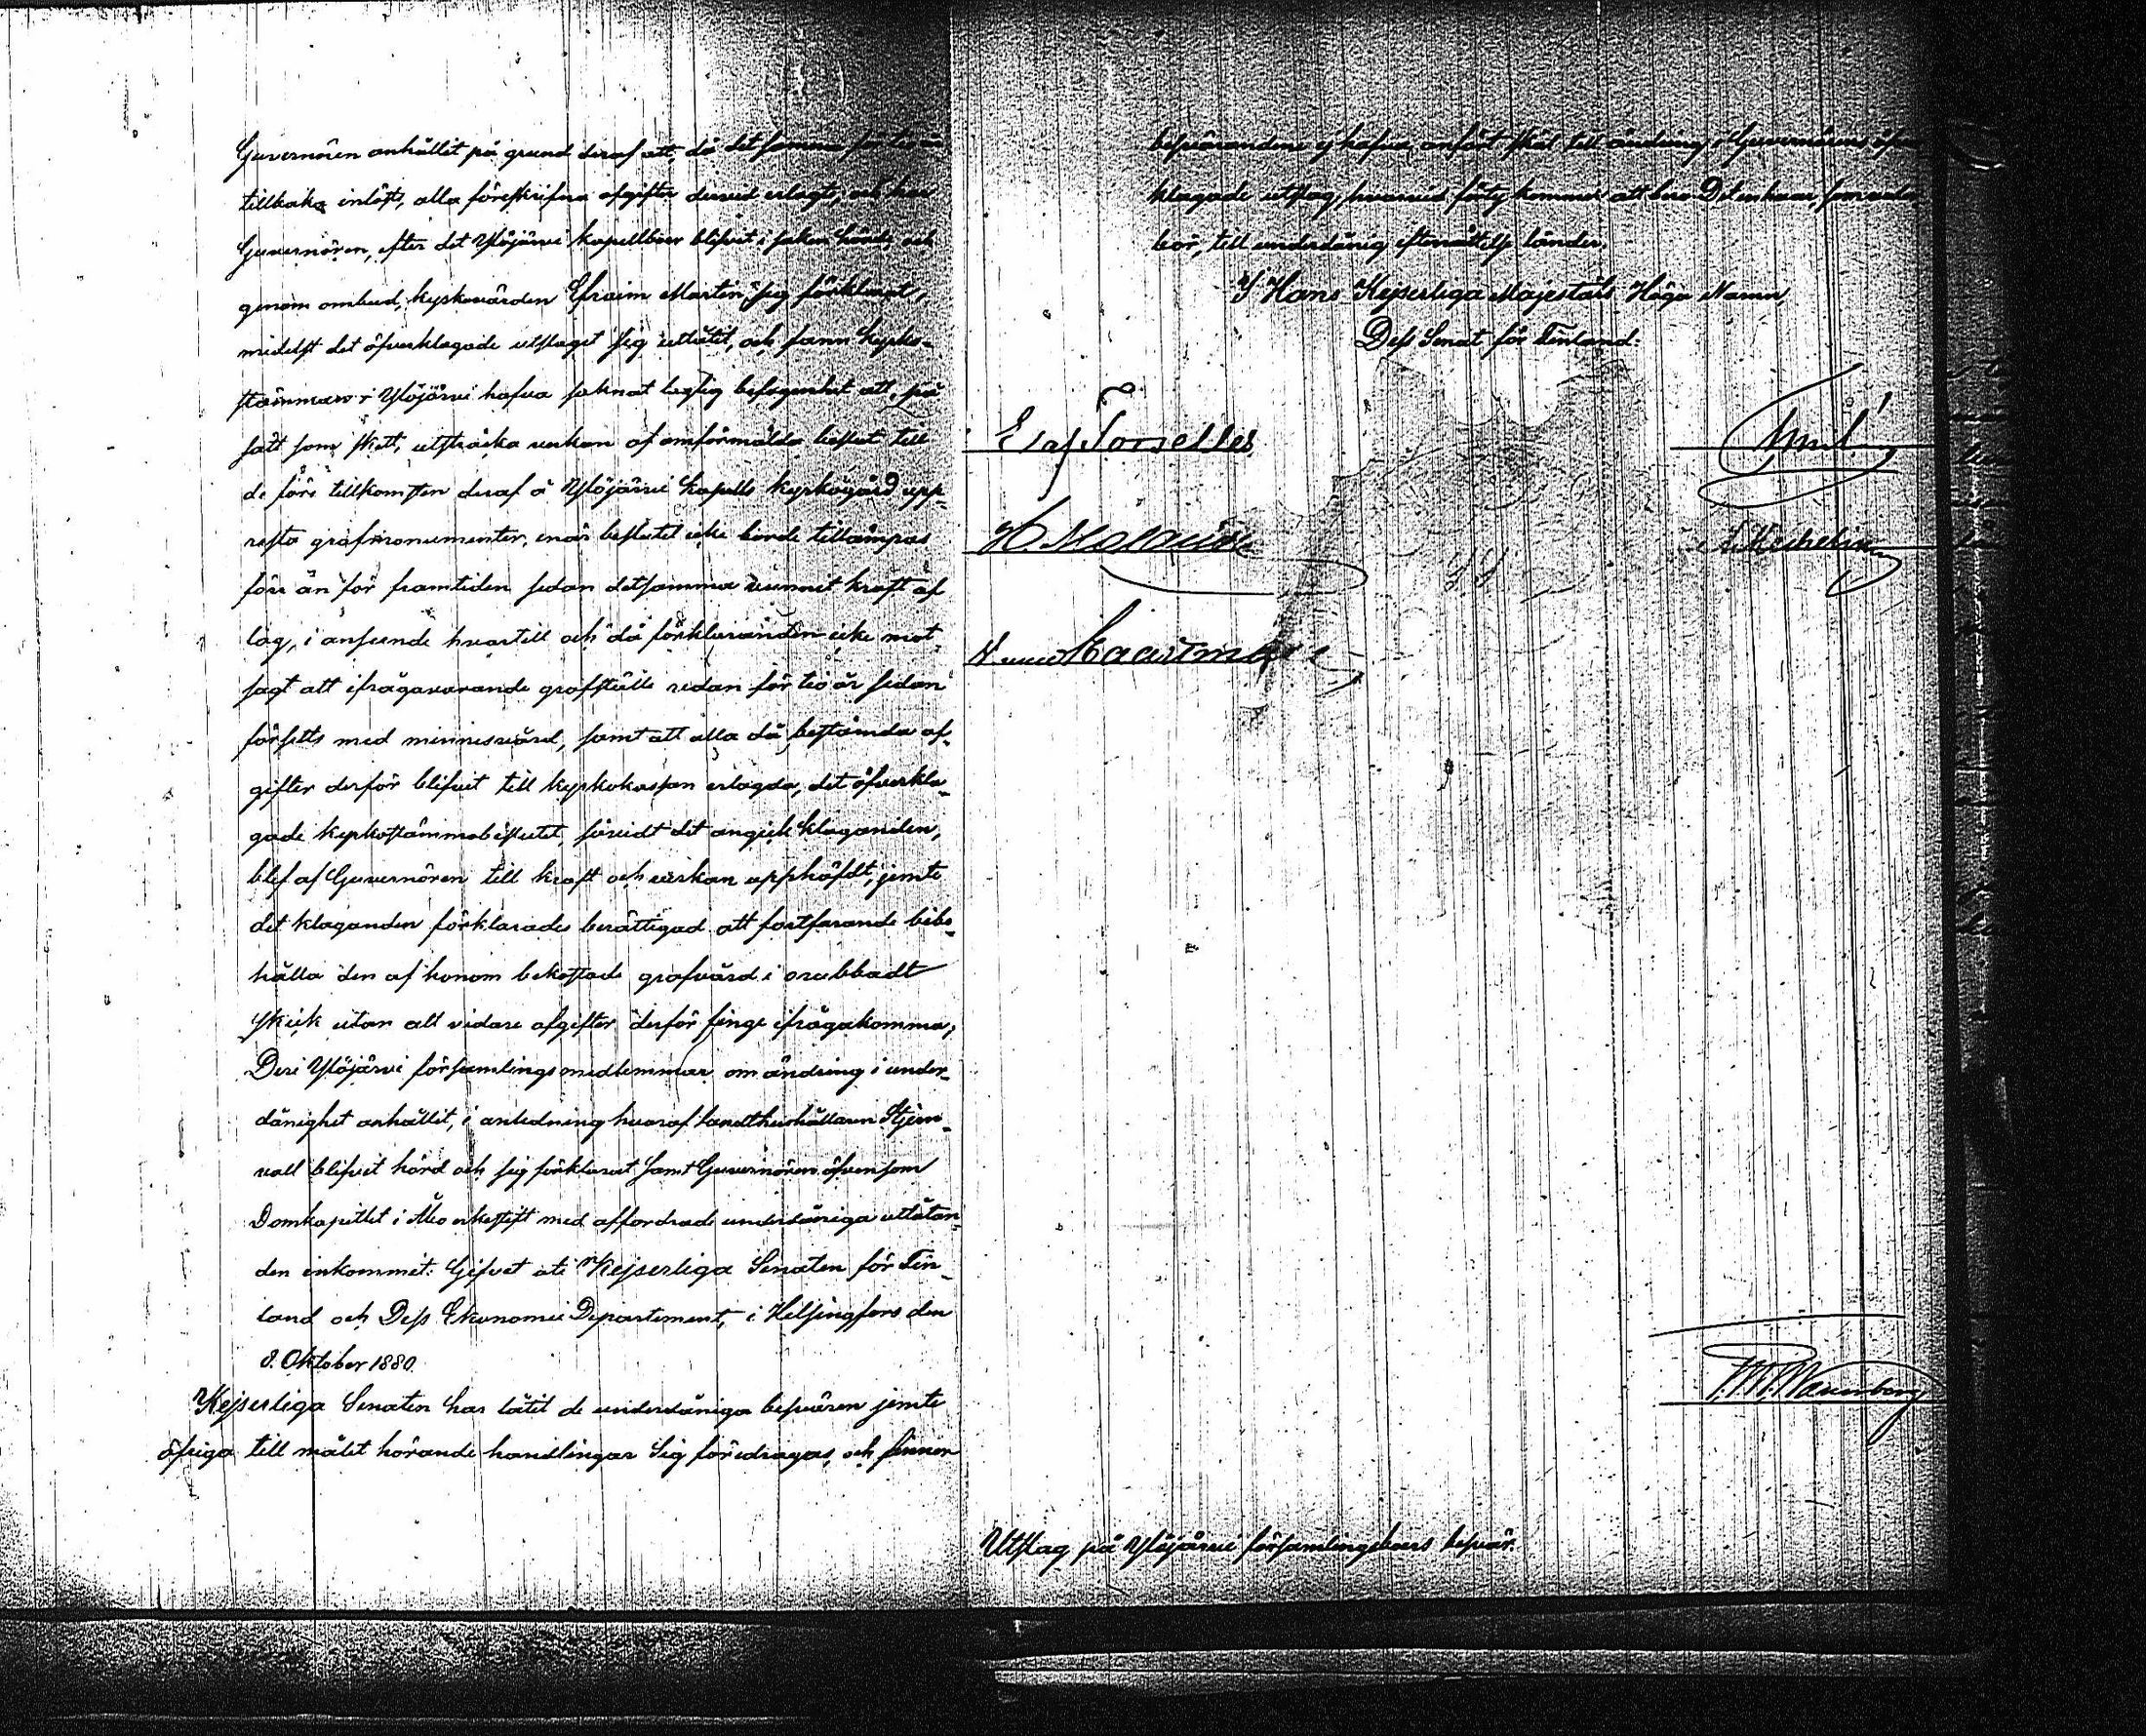 Guvernören anhållit på grund deraf att, då det samma för tio år
tillbaka inlöst, alla föreskrifna afgifter dervid erlagts, och har
Guvernören, efter det Ylöjärvi kapellboer blifvit i saken hörde och
genom ombud, kyrkovärden Efraim Marten sig förklarat,
medelst det öfverklagade utslaget sig utlåtit, och fann kyrko-
stämman i Ylöjärvi hafva saknat laglig befogenhet att, på
sätt som skett, utsträcka verkan af omförmälda beslut till
de före tillkomsten deraf å Ylöjärvi kapells kyrkogård upp-
resta grafmonumenter, enär beslutet icke borde tillämpas
förr än för framtiden sedan detsamma vunnit kraft af
lag, i anseende hvartill och då förklaranden icke mot-
sagt att ifrågavarande grafställe redan för tio år sedan
försetts med minnesvård, samt att alla då bestämda af-
gifter derför blifvit till kyrkokassan erlagda, det öfverkla-
gade kyrkostämmobeslutet, såvidt det angick klaganden,
blef af Guvernören till kraft och verkan upphäfdt, jemte
det klaganden förklarades berättigad att fortfarande bibe-
hålla den af honom bekostade grafvård i orubbadt
skick utan att vidare afgifter derför finge ifrågakomma;
Deri Ylöjärvi församlingsmedlemmar om ändring i under-
dånighet anhållit, i anledning hvaraf landthushållaren Stjern-
vall blifvit hörd och sig förklarat samt Guvernören äfvensom
Domkapitlet i Åbo erkestift med affordrade underdåniga utlåtan-
den inkommit: Gifvet uti Kejserliga Senaten för Fin-
land och Dess Ekonomie Departement, i Helsingfors den
8. Oktober 1880.
Kejserliga Senaten har låtit de underdåniga besvären jemte
öfriga till målet hörande handlingar Sig föredragas, och finner
besvärandene ej hafva anfört skäl till ändring i Guvernörens öfver
klagade utslag, hvarvid förty kommer att bero Det enhvar, som veder
bör, till underdånig efterrättelse länder.
I Hans Kejserliga Majestäts Höga Namn,
Dess Senat för Finland:
E af Forselles
H. Molander
L. Mechelin
Haartman
Utslag på Ylöjärvi församlingsboers besvär.